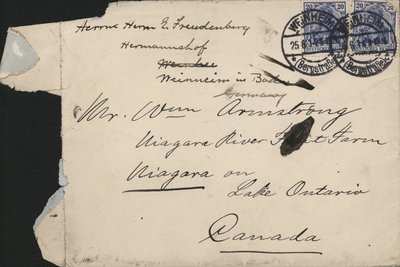 Herrn Herm E. Freudenberg
Hermannshof
Weinheim in Baden
Germany
20 20
WEINHEIM
(Bergstraße)
Mr. Wm Armstrong
Niagara River Fruit Farm
Niagara on
Lake Ontario
Canada